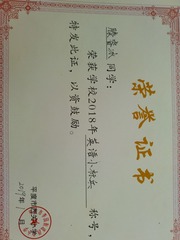 荣誉证书
同学：
荣获学校2018年英语小标兵 称号，
特发此证，以资鼓励。
平度市
2019年1月